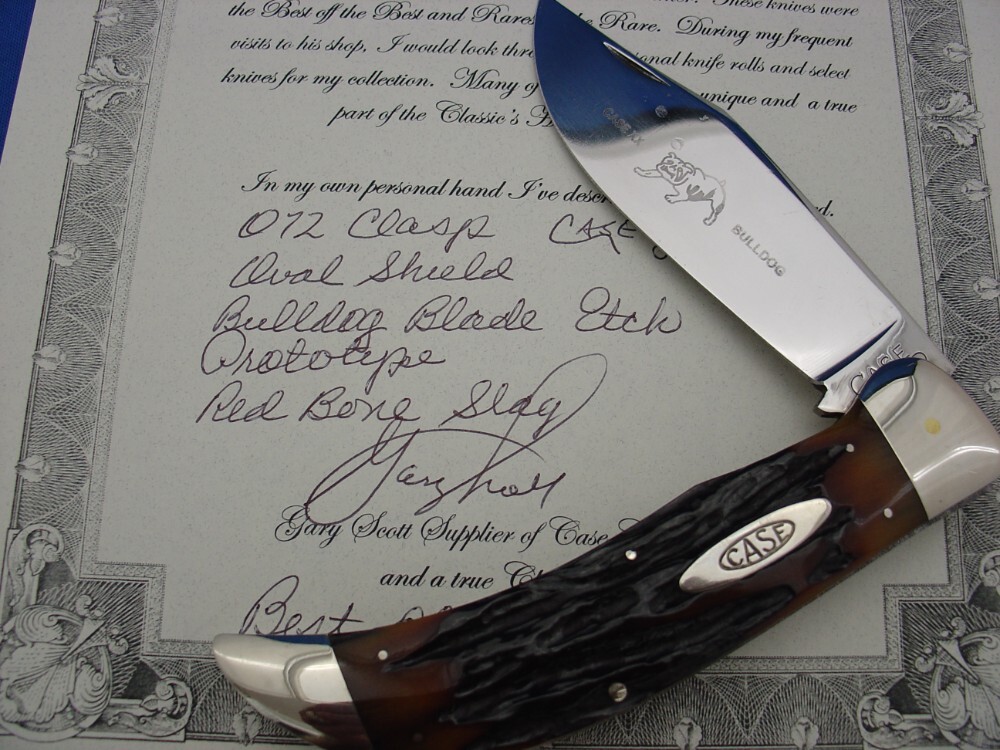 These knives were
the Best off the Best and Rares the Rare. During my frequent
visits to his shop, I would look thro onal knife rolls and select
knives for my collection. Many of unique and a true
part of the Classic's H
In my own personal hand I've descr d.
072 Clasp CASE
Oval Shield
Bulldog Blade Etch
Prototype
Red Bone Stag
Gary Scott
Gary Scott Supplier of Case
and a true C
Best
CASE XX
BULLDOG
CASE
CASE